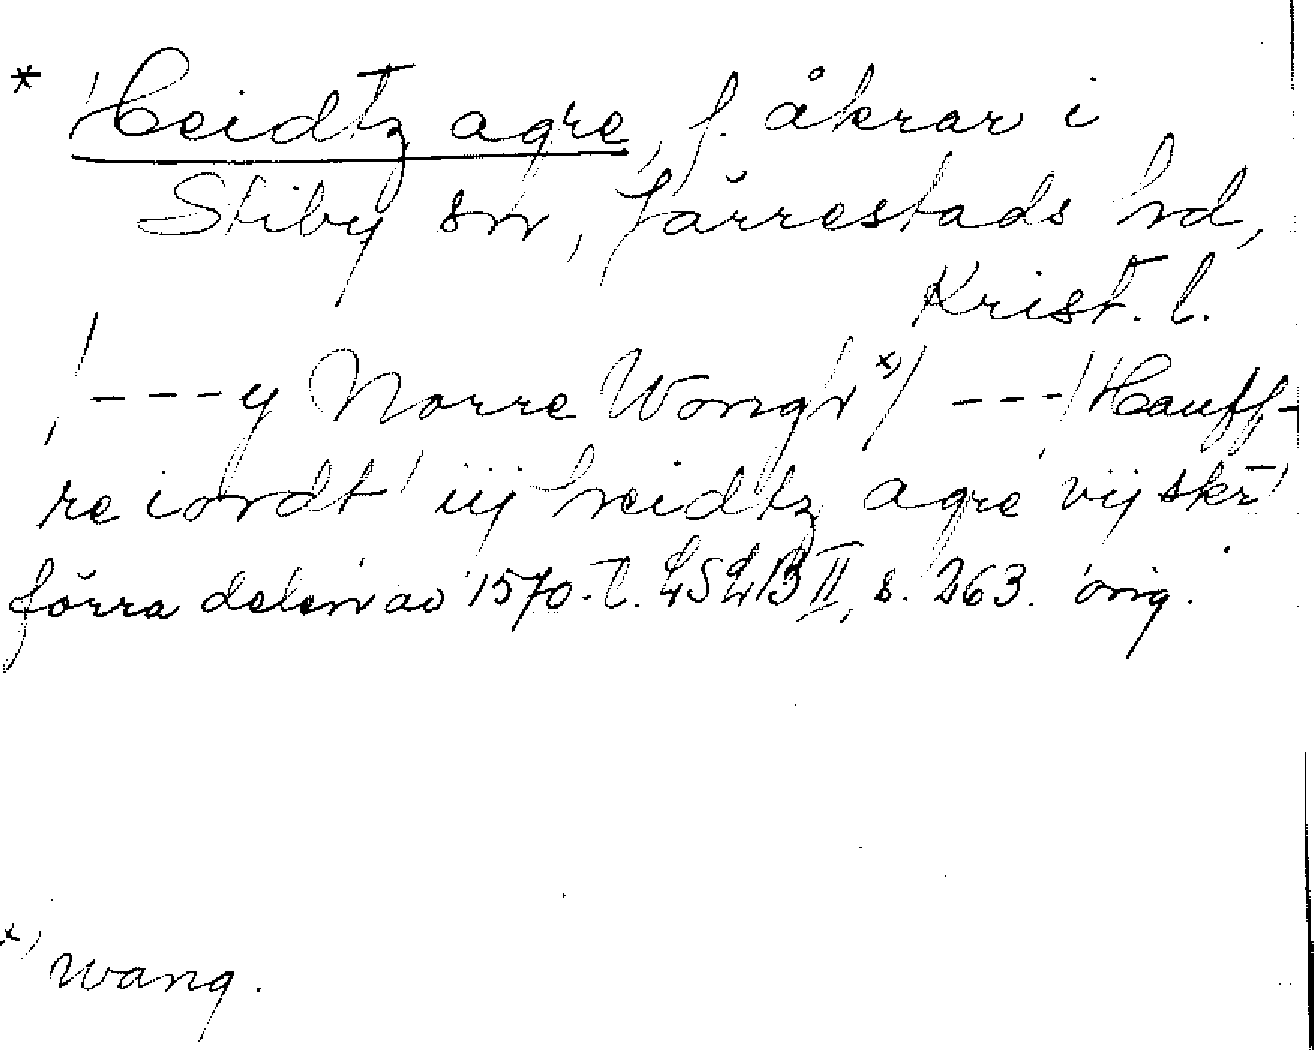 * Heidtz agre, f. åkrar i
Stiby sn, Järrestads hd,
Krist. l.
/---y Norre Wongh x)/ ---/ Hauff-
re iordt iij heidtz agre vij skr̄
förra delen av 1570-t. LSLB II, s. 263. orig.
x) wang.